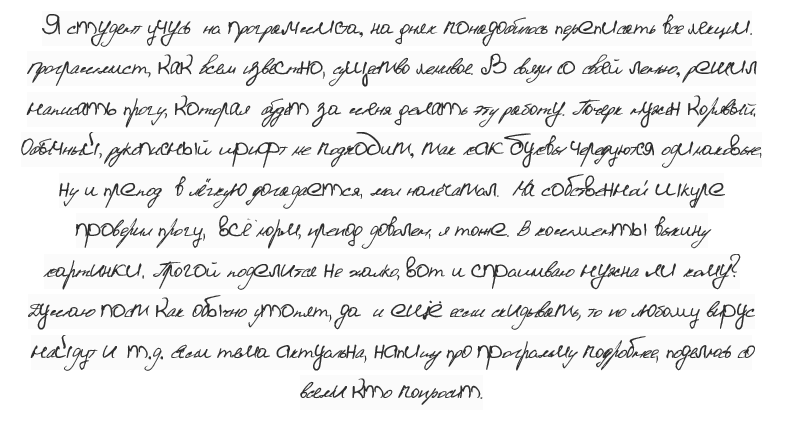 Я студент учусь на программиста, на днях понадобилось переписать все лекции.
программист, как всем известно, существо ленивое. В связи со своей ленью, решил
написать прогу, которая будет за меня делать эту работу. Почерк нужен корявый.
Обычный, рукописный шрифт не подходит, так как буквы чередуются одинаковые,
Ну и препод в лёгкую догадается, мол напечатал. На собственной шкуре
проверил прогу, всё норм, препод доволен, я тоже. В комменты выкину
картинки. Прогой поделится не жалко, вот и спрашиваю нужна ли кому?
Думаю пост как обычно утопят, да и ещё если скидывать, то по любому вирус
найдут и т.д. если тема актуальна, напишу про программу подробнее, поделюсь со
всеми кто попросит.